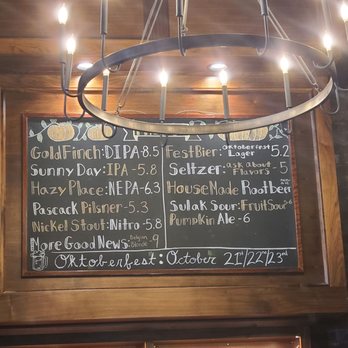 GoldFinch: DIPA-8.5
Sunny Day: IPA - 5.8
Hazy Place: NEPA-6.3
Pascack Pilsner - 5.3
Nickel Stout: Nitro - 5.8
More Good News: Belgian Blonde 9
FestBier: Oktoberfest Lager 5.2
Seltzer: ask About Flavors - 5
House Made Rootbeer
Sulak Sour: Fruit Sour - 6
Pumpkin Ale - 6
Oktoberfest: October 21st/22nd/23rd